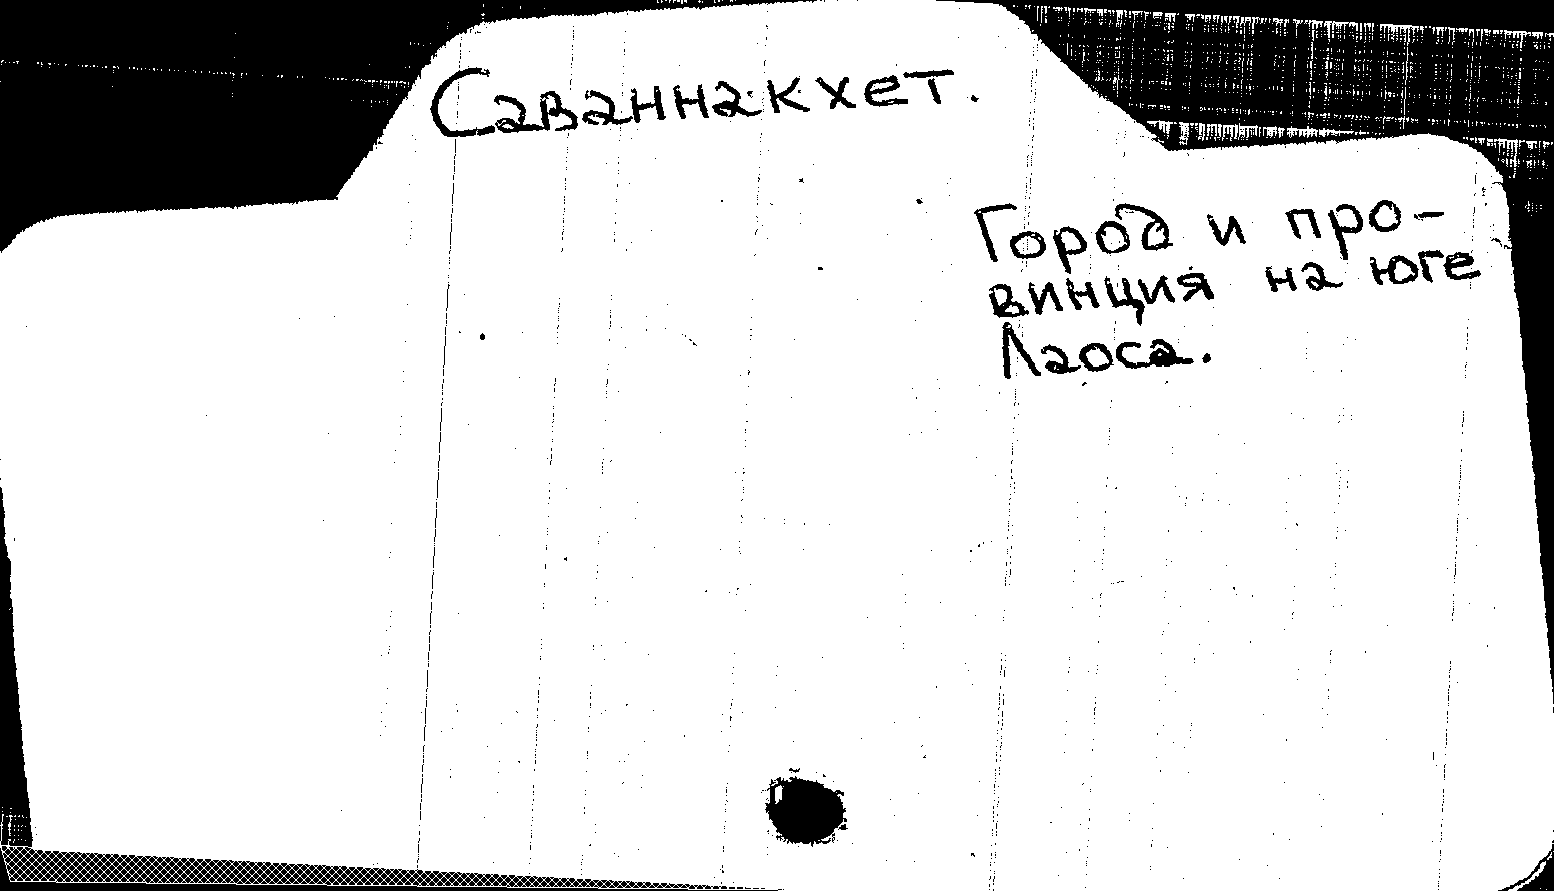 Саваннакхет.
Город и про-
винция на юге
Лаоса.